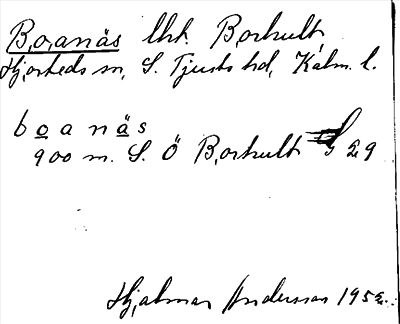 Boanäs lht. Borhult
Hjorteds sn, S. Tjusts hd, Kalm. l.
b o a n ä s
900 m. S. Ö Borhult S 29
Hjalmar Andersson 1952.